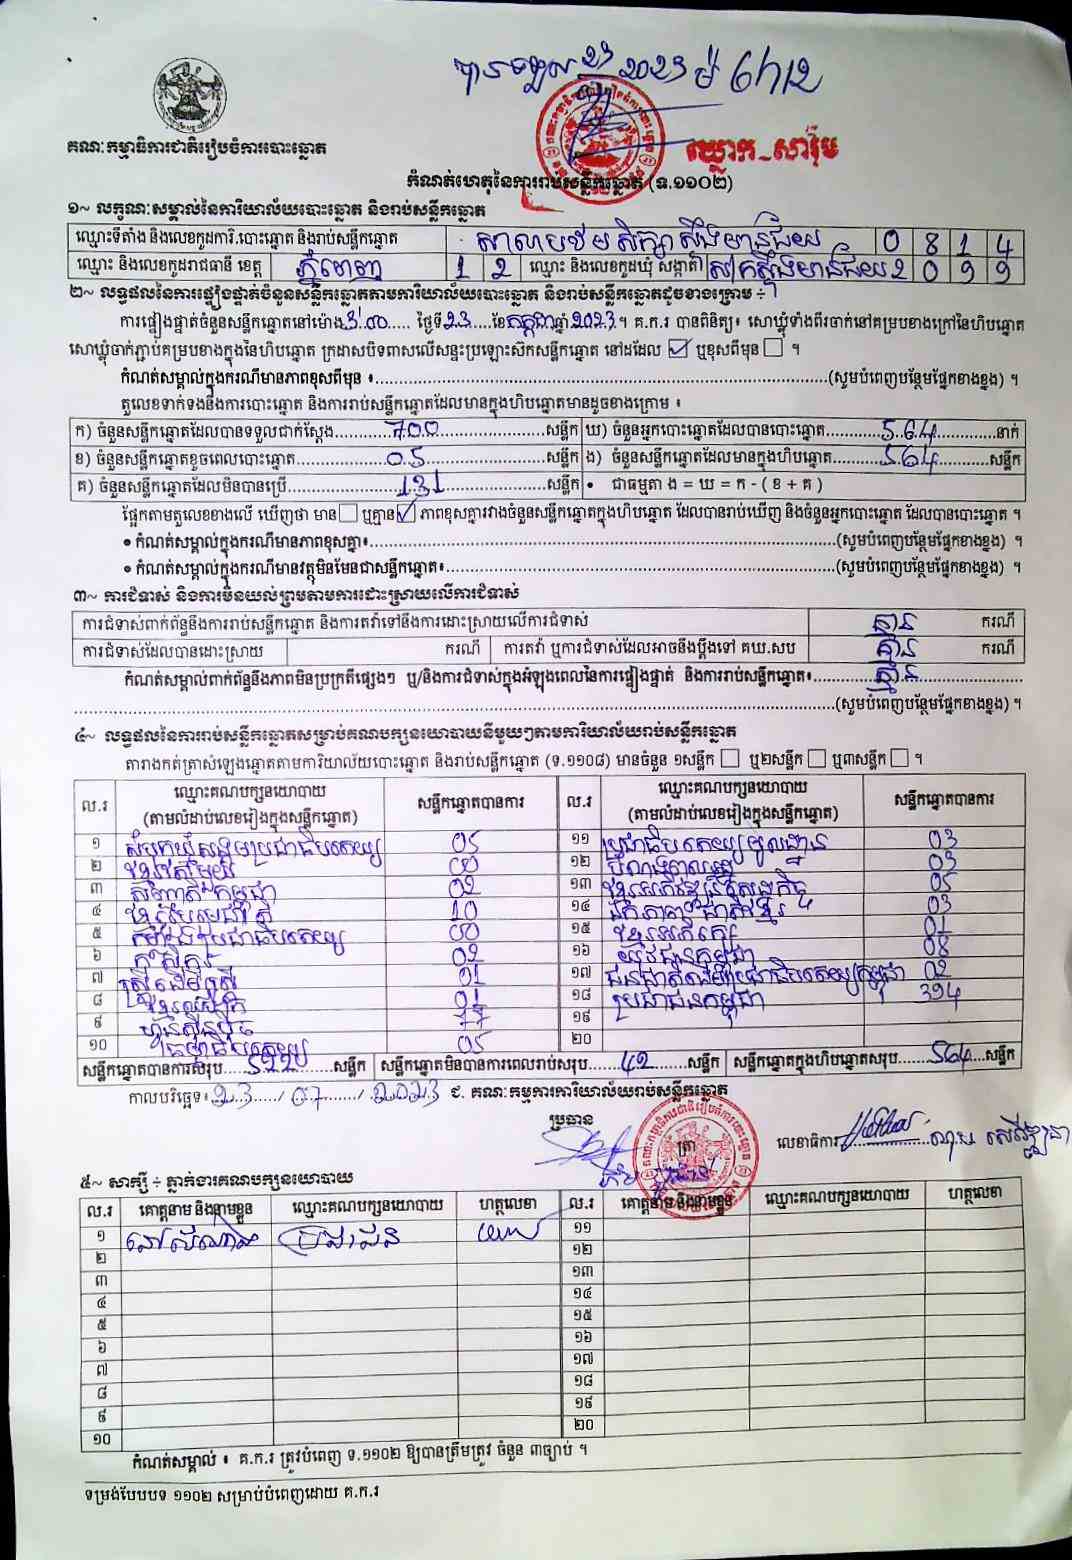 បានទទួល 23 2023 ម៉ 6h12
គណៈកម្មាធិការជាតិរៀបចំការបោះឆ្នោត
ឈ្លោក_សារ៉ុម
កំណត់ហេតុនៃការរាប់សន្លឹកឆ្នោត (ទ.១១០២)
១~ លក្ខណៈសម្គាល់នៃការិយាល័យបោះឆ្នោត និងរាប់សន្លឹកឆ្នោត
ឈ្មោះទីតាំង និងលេខកូដការិ.បោះឆ្នោត និងរាប់សន្លឹកឆ្នោត សាលាបឋមសិក្សាស្ទឹងមានជ័យ 0 8 1 4
ឈ្មោះ និងលេខកូដរាជធានី ខេត្ត ភ្នំពេញ 1 2 ឈ្មោះ និងលេខកូដឃុំ សង្កាត់ ស្ទឹងមានជ័យ 2 0 9 9
២~ លទ្ធផលនៃការផ្ទៀងផ្ទាត់ចំនួនសន្លឹកឆ្នោតតាមការិយាល័យបោះឆ្នោត និងរាប់សន្លឹកឆ្នោតដូចខាងក្រោម ÷
ការផ្ទៀងផ្ទាត់ចំនួនសន្លឹកឆ្នោតនៅម៉ោង 3:00 ថ្ងៃទី 23 ខែ កក្កដា ឆ្នាំ 2023 ។ គ.ក.រ បានពិនិត្យ៖ សោឃ្លុំទាំងពីរចាក់នៅគម្របខាងក្រៅនៃហិបឆ្នោត
សោឃ្លុំចាក់ភ្ជាប់គម្របខាងក្នុងនៃហិបឆ្នោត ក្រដាសបិទពាសលើសន្ទះប្រឡោះស៊កសន្លឹកឆ្នោត នៅដដែល ☑ ឬខុសពីមុន ☐ ។
កំណត់សម្គាល់ក្នុងករណីមានភាពខុសពីមុន ៖ (សូមបំពេញបន្ថែមផ្នែកខាងខ្នង) ។
តួលេខទាក់ទងនឹងការបោះឆ្នោត និងការរាប់សន្លឹកឆ្នោតដែលមានក្នុងហិបឆ្នោតមានដូចខាងក្រោម ៖
ក) ចំនួនសន្លឹកឆ្នោតដែលបានទទួលជាក់ស្តែង 700 សន្លឹក ឃ) ចំនួនអ្នកបោះឆ្នោតដែលបានបោះឆ្នោត 564 នាក់
ខ) ចំនួនសន្លឹកឆ្នោតខូចពេលបោះឆ្នោត 05 សន្លឹក ង) ចំនួនសន្លឹកឆ្នោតដែលមានក្នុងហិបឆ្នោត 564 សន្លឹក
គ) ចំនួនសន្លឹកឆ្នោតដែលមិនបានប្រើ 131 សន្លឹក • ជាធម្មតា ង = ឃ = ក - ( ខ + គ )
ផ្អែកតាមតួលេខខាងលើ ឃើញថា មាន ☐ ឬគ្មាន ☑ ភាពខុសគ្នារវាងចំនួនសន្លឹកឆ្នោតក្នុងហិបឆ្នោត ដែលបានរាប់ឃើញ និងចំនួនអ្នកបោះឆ្នោត ដែលបានបោះឆ្នោត ។
• កំណត់សម្គាល់ក្នុងករណីមានភាពខុសគ្នា៖ (សូមបំពេញបន្ថែមផ្នែកខាងខ្នង) ។
• កំណត់សម្គាល់ក្នុងករណីមានវត្ថុមិនមែនជាសន្លឹកឆ្នោត៖ (សូមបំពេញបន្ថែមផ្នែកខាងខ្នង) ។
៣~ ការជំទាស់ និងការមិនយល់ព្រមតាមការដោះស្រាយលើការជំទាស់
ការជំទាស់ពាក់ព័ន្ធនឹងការរាប់សន្លឹកឆ្នោត និងការតវ៉ាទៅនឹងការដោះស្រាយលើការជំទាស់ គ្មាន ករណី
ការជំទាស់ដែលបានដោះស្រាយ ករណី ការតវ៉ា ឬការជំទាស់ដែលអាចនឹងប្តឹងទៅ គឃ.សប គ្មាន ករណី
កំណត់សម្គាល់ពាក់ព័ន្ធនឹងភាពមិនប្រក្រតីផ្សេងៗ ឬ/និងការជំទាស់ក្នុងអំឡុងពេលនៃការផ្ទៀងផ្ទាត់ និងការរាប់សន្លឹកឆ្នោត៖ គ្មាន
(សូមបំពេញបន្ថែមផ្នែកខាងខ្នង) ។
៤~ លទ្ធផលនៃការរាប់សន្លឹកឆ្នោតសម្រាប់គណបក្សនយោបាយនីមួយៗតាមការិយាល័យរាប់សន្លឹកឆ្នោត
តារាងកត់ត្រាសំឡេងឆ្នោតតាមការិយាល័យបោះឆ្នោត និងរាប់សន្លឹកឆ្នោត (ទ.១១០៨) មានចំនួន ១សន្លឹក ☐ ឬ២សន្លឹក ☐ ឬ៣សន្លឹក ☐ ។
ល.រ ឈ្មោះគណបក្សនយោបាយ (តាមលំដាប់លេខរៀងក្នុងសន្លឹកឆ្នោត) សន្លឹកឆ្នោតបានការ ល.រ ឈ្មោះគណបក្សនយោបាយ (តាមលំដាប់លេខរៀងក្នុងសន្លឹកឆ្នោត) សន្លឹកឆ្នោតបានការ
១ សំបុកឃ្មុំសង្គមប្រជាធិបតេយ្យ 05 ១១ ប្រជាធិបតេយ្យមូលដ្ឋាន 03
២ 00 ១២ 03
៣ កម្ពុជា 02 ១៣ ខ្មែរអភិវឌ្ឍន៍សេដ្ឋកិច្ច 05
៤ ខ្មែររួបរួមជាតិ 10 ១៤ ឯកភាពជាតិខ្មែរ 03
៥ ប្រជាធិបតេយ្យ 00 ១៥ ខ្មែរអភិរក្ស 01
៦ កសិករ 02 ១៦ យុវជនកម្ពុជា 08
៧ ស្ត្រីដើម្បីស្ត្រី 01 ១៧ ជនជាតិដើមប្រជាធិបតេយ្យកម្ពុជា 02
៨ ខ្មែរ ១៨ ប្រជាជនកម្ពុជា 394
៩ ហ្វ៊ុនស៊ិនប៉ិច 77 ១៩
១០ ធម្មាធិបតេយ្យ 05 ២០
សន្លឹកឆ្នោតបានការសរុប 522 សន្លឹក សន្លឹកឆ្នោតមិនបានការពេលរាប់សរុប 42 សន្លឹក សន្លឹកឆ្នោតក្នុងហិបឆ្នោតសរុប 564 សន្លឹក
កាលបរិច្ឆេទ៖ 23 / 07 / 2023 ជ. គណៈកម្មការការិយាល័យរាប់សន្លឹកឆ្នោត
ប្រធាន ត្រា លេខាធិការ
៥~ សាក្សី ÷ ភ្នាក់ងារគណបក្សនយោបាយ
ល.រ គោត្តនាម និងនាមខ្លួន ឈ្មោះគណបក្សនយោបាយ ហត្ថលេខា ល.រ គោត្តនាម និងនាមខ្លួន ឈ្មោះគណបក្សនយោបាយ ហត្ថលេខា
១ ប្រជាជន ១១
២ ១២
៣ ១៣
៤ ១៤
៥ ១៥
៦ ១៦
៧ ១៧
៨ ១៨
៩ ១៩
១០ ២០
កំណត់សម្គាល់ ៖ គ.ក.រ ត្រូវបំពេញ ទ.១១០២ ឱ្យបានត្រឹមត្រូវ ចំនួន ៣ច្បាប់ ។
ទម្រង់បែបបទ ១១០២ សម្រាប់បំពេញដោយ គ.ក.រ